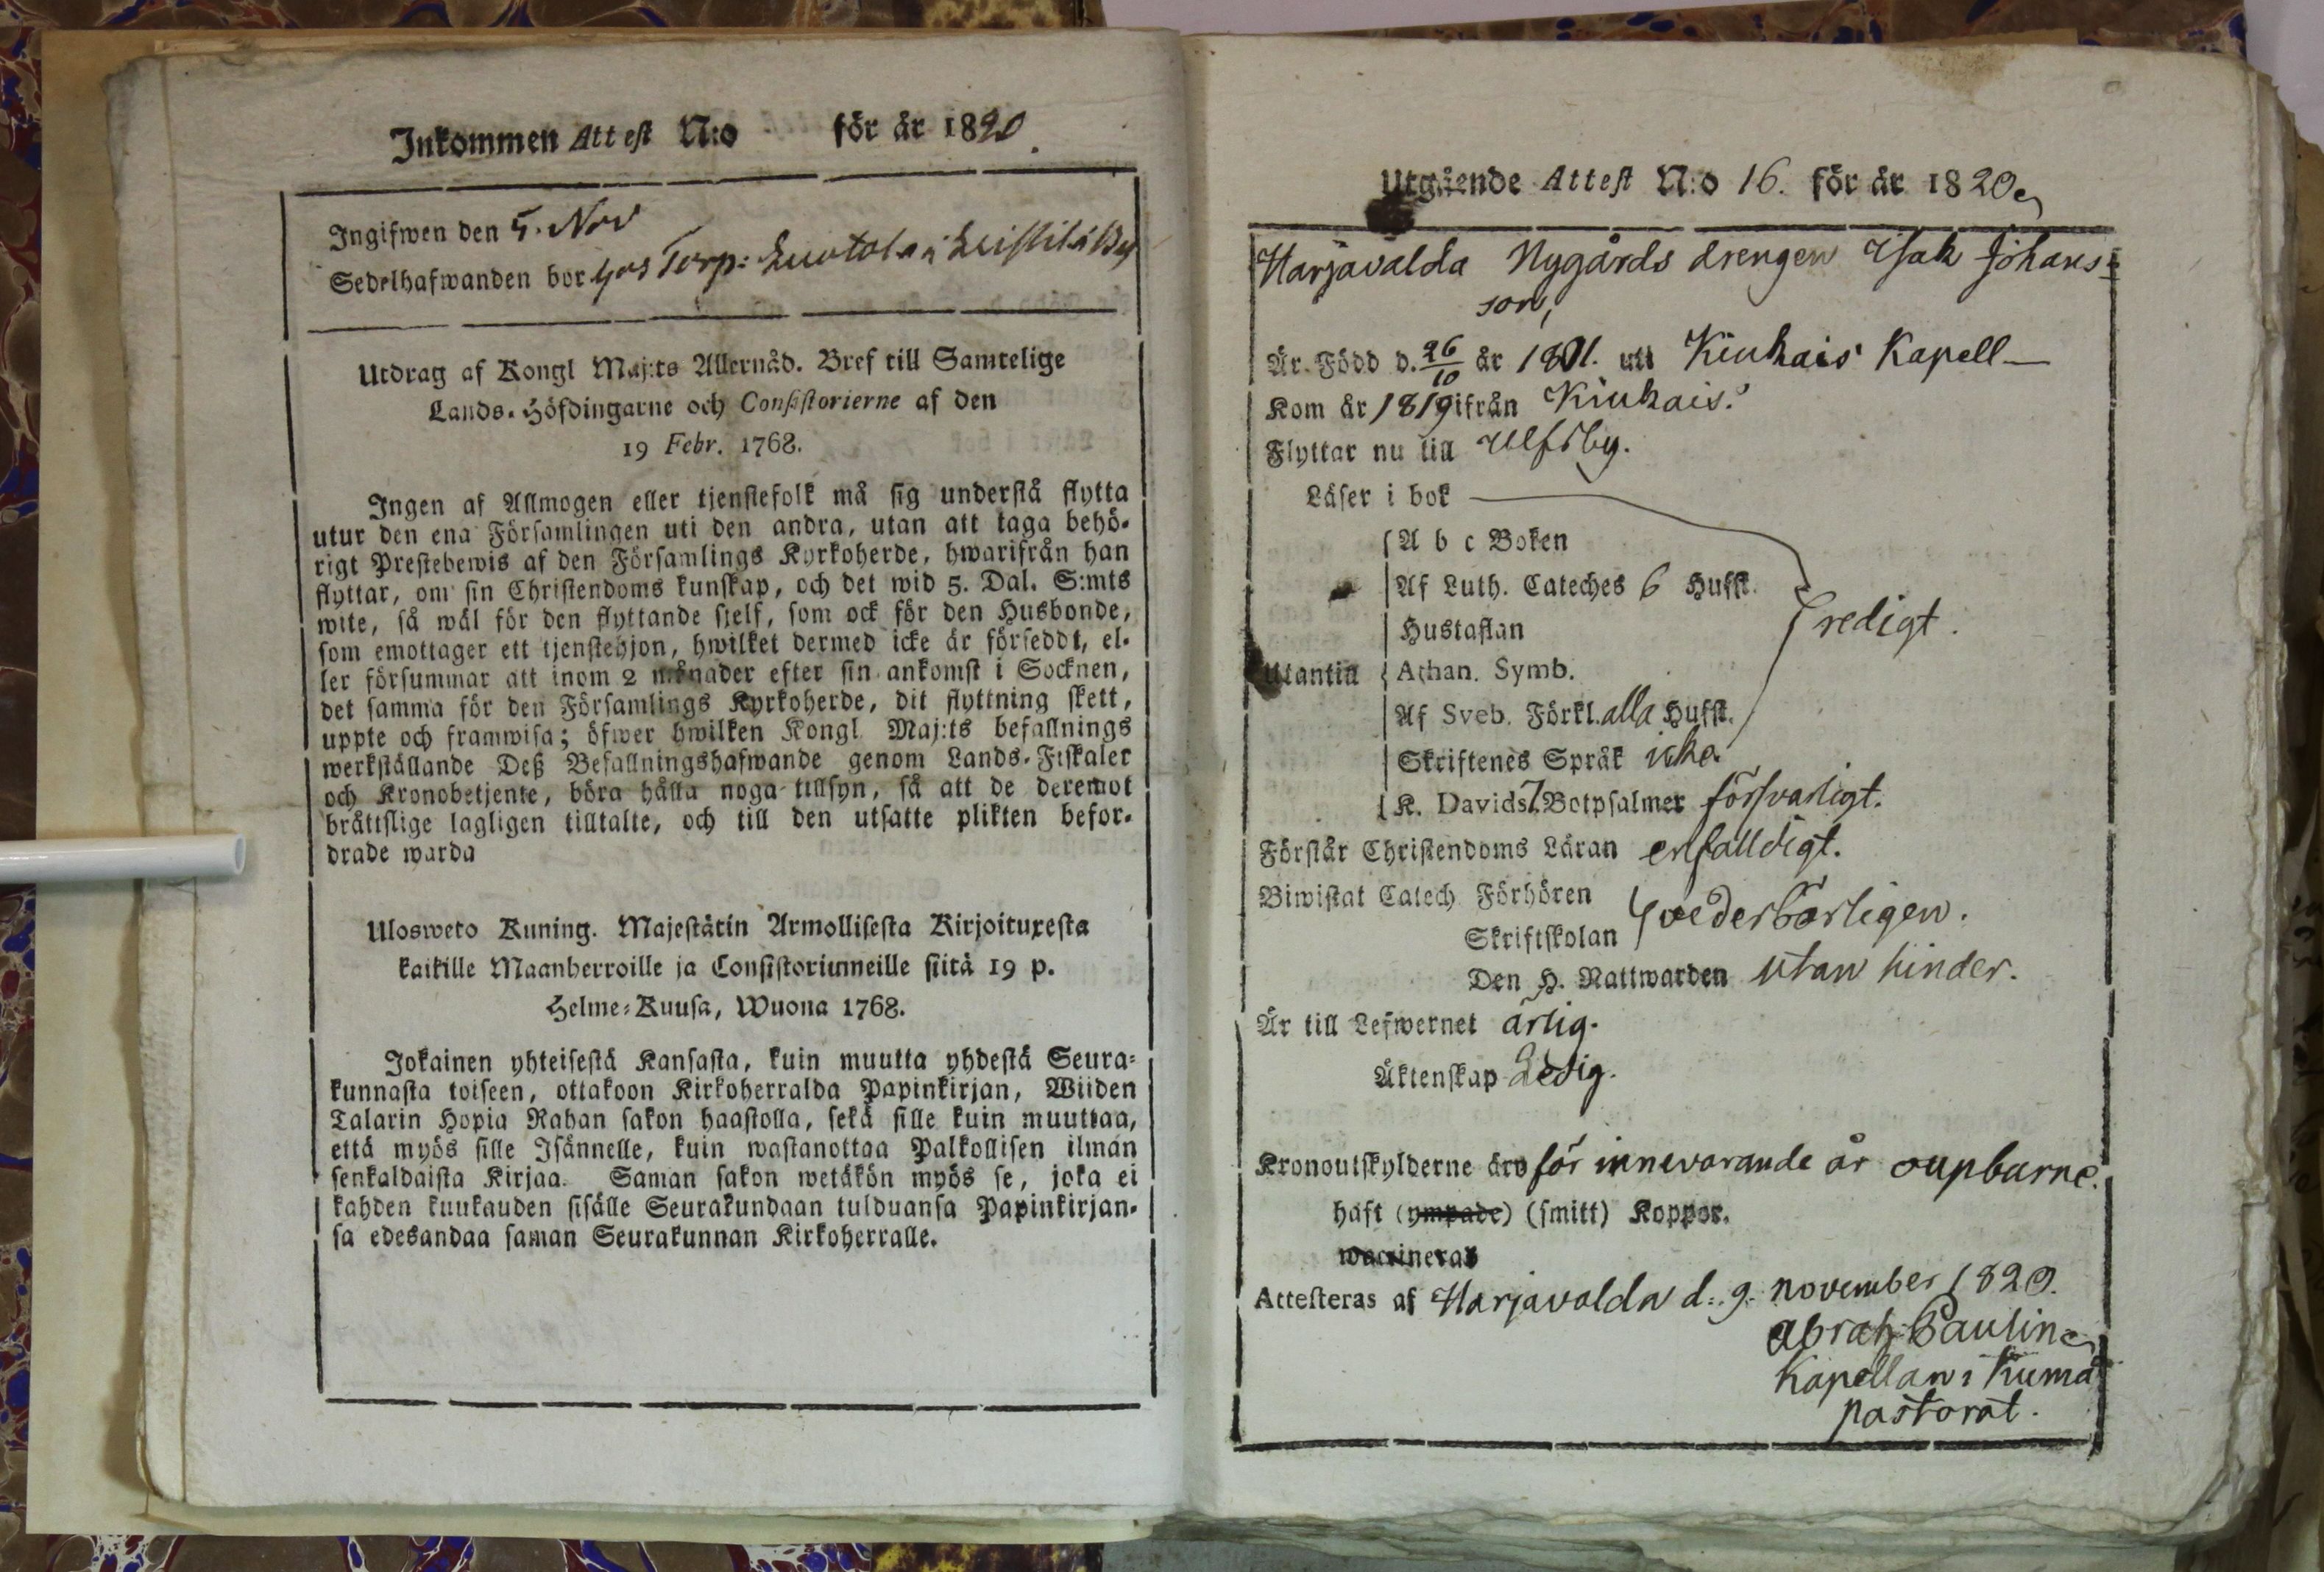 Inkommen Attest N:o för år 1820.
Ingifwen den 5. Nov
Sedelhafwanden bor hos Torp: Luotola i Leistilä By
Utdrag af Kongl Maj:ts Allernåd. Bref till Samtelige
Lands-Höfdingarne och Consistorierne af den
19 Febr. 1768.
Ingen af Allmogen eller tjenstefolk må sig understå flytta
utur den ena Församlingen uti den andra, utan att taga behö-
rigt Prestebewis af den Församlings Kyrkoherde, hwarifrån han
flyttar, om sin Christendoms kunskap, och det wid 5. Dal. S:mts
wite, så wäl för den flyttande sjelf, som ock för den Husbonde,
som emottager ett tjenstehjon, hwilket dermed icke är förseddt, el-
ler försummar att inom 2 månader efter sin ankomst i Socknen,
det samma för den Församlings Kyrkoherde, dit flyttning skett,
uppte och framwisa; öfwer hwilken Kongl Maj:ts befallnings
werkställande Deß Befallningshafwande genom Lands-Fiskaler
och Kronobetjente, böra hålla noga tillsyn, så att de deremot
bråttslige lagligen tilltalte, och till den utsatte plikten befor-
drade warda
Ulosweto Kuning. Majestätin Armollisesta Kirjoituxesta
kaikille Maanherroille ja Consistoriumeille siitä 19 p.
Helme-Kuusa, Wuona 1768.
Jokainen yhteisestä Kansasta, kuin muutta yhdestä Seura-
kunnasta toiseen, ottakoon Kirkoherralda Papinkirjan, Wiiden
Talarin Hopia Rahan sakon haastolla, sekä sille kuin muuttaa,
että myös sille Isännelle, kuin wastanottaa Palkollisen ilman
senkaldaista Kirjaa. Saman sakon wetäkön myös se, joka ei
kahden kuukauden sisälle Seurakundaan tulduansa Papinkirjan-
sa edesandaa saman Seurakunnan Kirkoherralle.
Utgående Attest N:o 16. för år 1820
Harjavalda Nygårds drengen Isak Johans-
son,
Är Född d. 26/10 år 1801. uti Kiukais Kapell
Kom år 1819 ifrån Kiukais.
Flyttar nu till Ulfsby.
Läser i bok
A b c Boken
Af Luth. Cateches 6 Hufst.
Hustaflan redigt.
Utantill Athan. Symb.
Af Sveb. Förkl. alla Hufst.
Skriftenes Språk icke.
K. Davids 7 Botpsalmer försvarligt.
Förstår Christendoms Läran enfalldigt.
Biwistat Catech Förhören
Skriftskolan vederbörligen.
Den H. Nattwarden utan hinder.
Är till Lefwernet ärlig.
Äktenskap Ledig.
Kronoutskylderne äro för innevarande år oupbarne.
haft (ympade) (smitt) Koppor.
waccinerad
Attesteras af Harjavalda d. 9. november 1820.
Abrah Paulin
Kapellan i Kumå
pastorat.